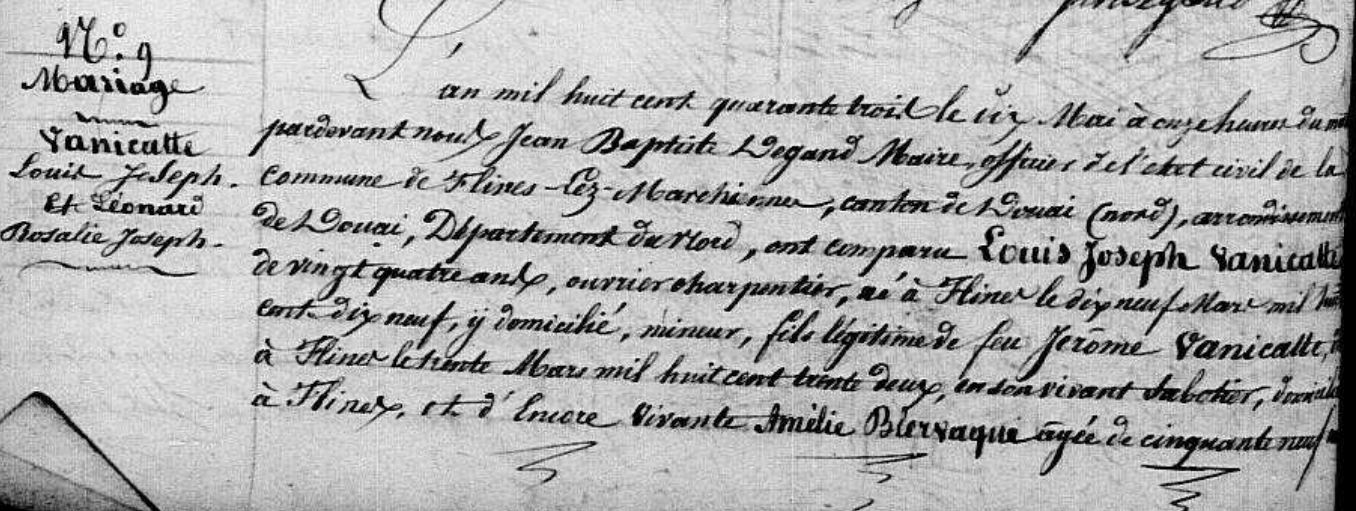 N.º 9
Mariage
Vanicatte
Louis Joseph.
Et Léonard
Rosalie Joseph.
L'an mil huit cent quarante trois le dix Mai à onze heures du
pardevant nous Jean Baptiste Degand Maire, officier de l'état civil de la
Commune de Flines-Lez-Marchiennes, canton de Douai (nord), arrondissement
de Douai, Département du Nord, ont comparu Louis Joseph Vanicatte
de vingt quatre ans, ouvrier charpentier, né à Flines le dix neuf Mars mil huit
cent dix neuf, y domicilié, mineur, fils légitime de feu Jerôme Vanicatte,
à Flines le trente Mars mil huit cent trente deux, en son vivant Sabotier,
à Flines, et d'Encore Vivante Amélie Biervaque âgée de cinquante neuf